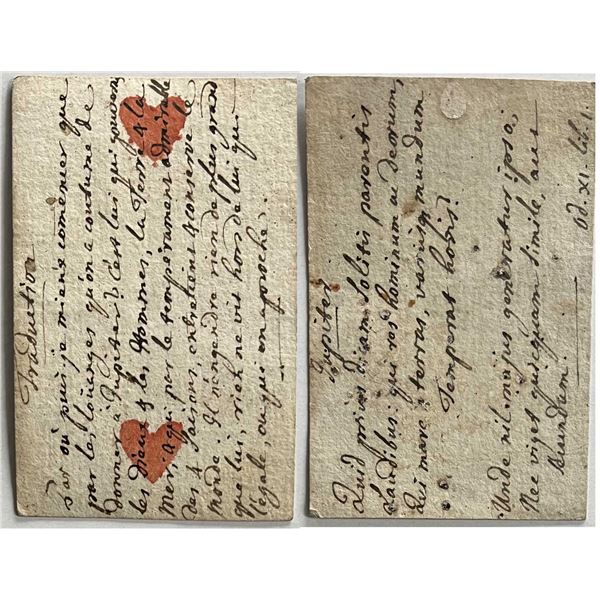 Traduction
Par où puis-je mieux comencer que
par les loüenges qu'on a coutume de
donner à Jupiter? C'est lui qui gouverne
les Dieux & les Hommes, la Terre & la
Mer, & qui par le tempérament admirable
des 4 saisons entretient & conserve le
monde. Il n'engendre rien de plus grand
que lui, rien ne vit hors de lui qui
l'égale, ou qui en aproche.
Jupiter.
Quid prius dicam solitis parentis
Laudibus: qui res hominum ac deorum,
Qui mare & terras, variisq; mundum
Temperat horis?
Unde nil majus generatur ipso,
Nec viget quicquam simile, aut
secundum.
Od. XII. lib. 1.